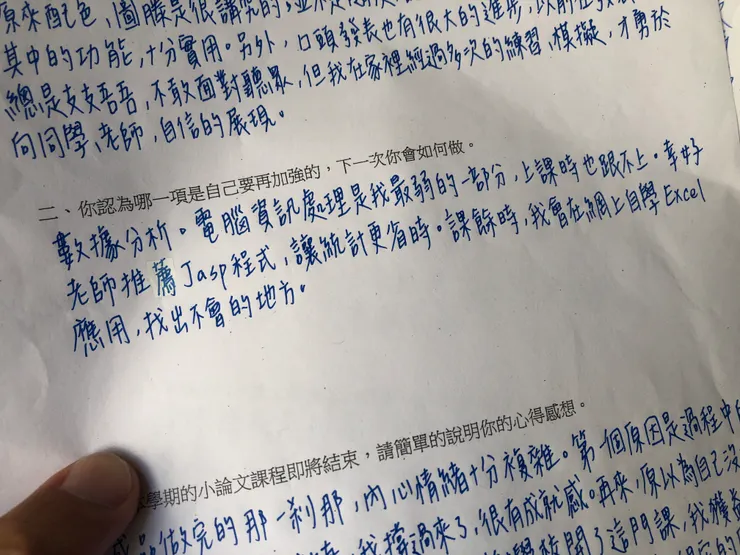 原來配色、圖騰是很講究的,並不
其中的功能,十分實用。另外,口頭發表也有很大的進步,以前在發表
總是支支吾吾,不敢面對聽眾,但我在家裡經過多次的練習、模擬,才勇於
向同學、老師,自信的展現。
二、你認為哪一項是自己要再加強的,下一次你會如何做。
數據分析。電腦資訊處理是我最弱的一部分,上課時也跟不上。幸好
老師推薦Jasp程式,讓統計更省時。課餘時,我會在網上自學Excel
應用,找出不會的地方。
學期的小論文課程即將結束,請簡單的說明你的心得感想。
做完的那一剎那,內心情緒十分複雜。第一個原因是過程中的
我撐過來了,很有成就感。再來,原以為自己沒
開了這門課,我獲益